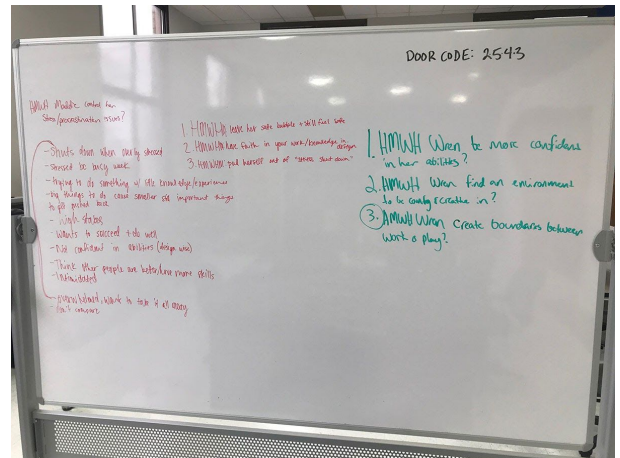 DOOR CODE: 2543
HMWH Maddie control her
stress/procrastination issues?
- Shuts down when overly stressed
- stressed bc busy week
- trying to do something w/ little knowledge/experience
- big things to do cause smaller still important things
to get pushed back
- high stakes
- Wants to succeed + do well
- Not confident in abilities (design wise)
- Think other people are better/have more skills
- Intimidated
- overwhelmed, want to take it all away
- don't compare
1. HMWHA leave her safe bubble + still feel safe
2 HMWHA have faith in your work/knowledge in
design
3. HMWHA pull herself out of "stress shut down"
1. HMWH Wren be more confident
in her abilities?
2. HMWH Wren find an environment
to be comfy & creative in?
3. HMWH Wren create boundaries between
work & play?